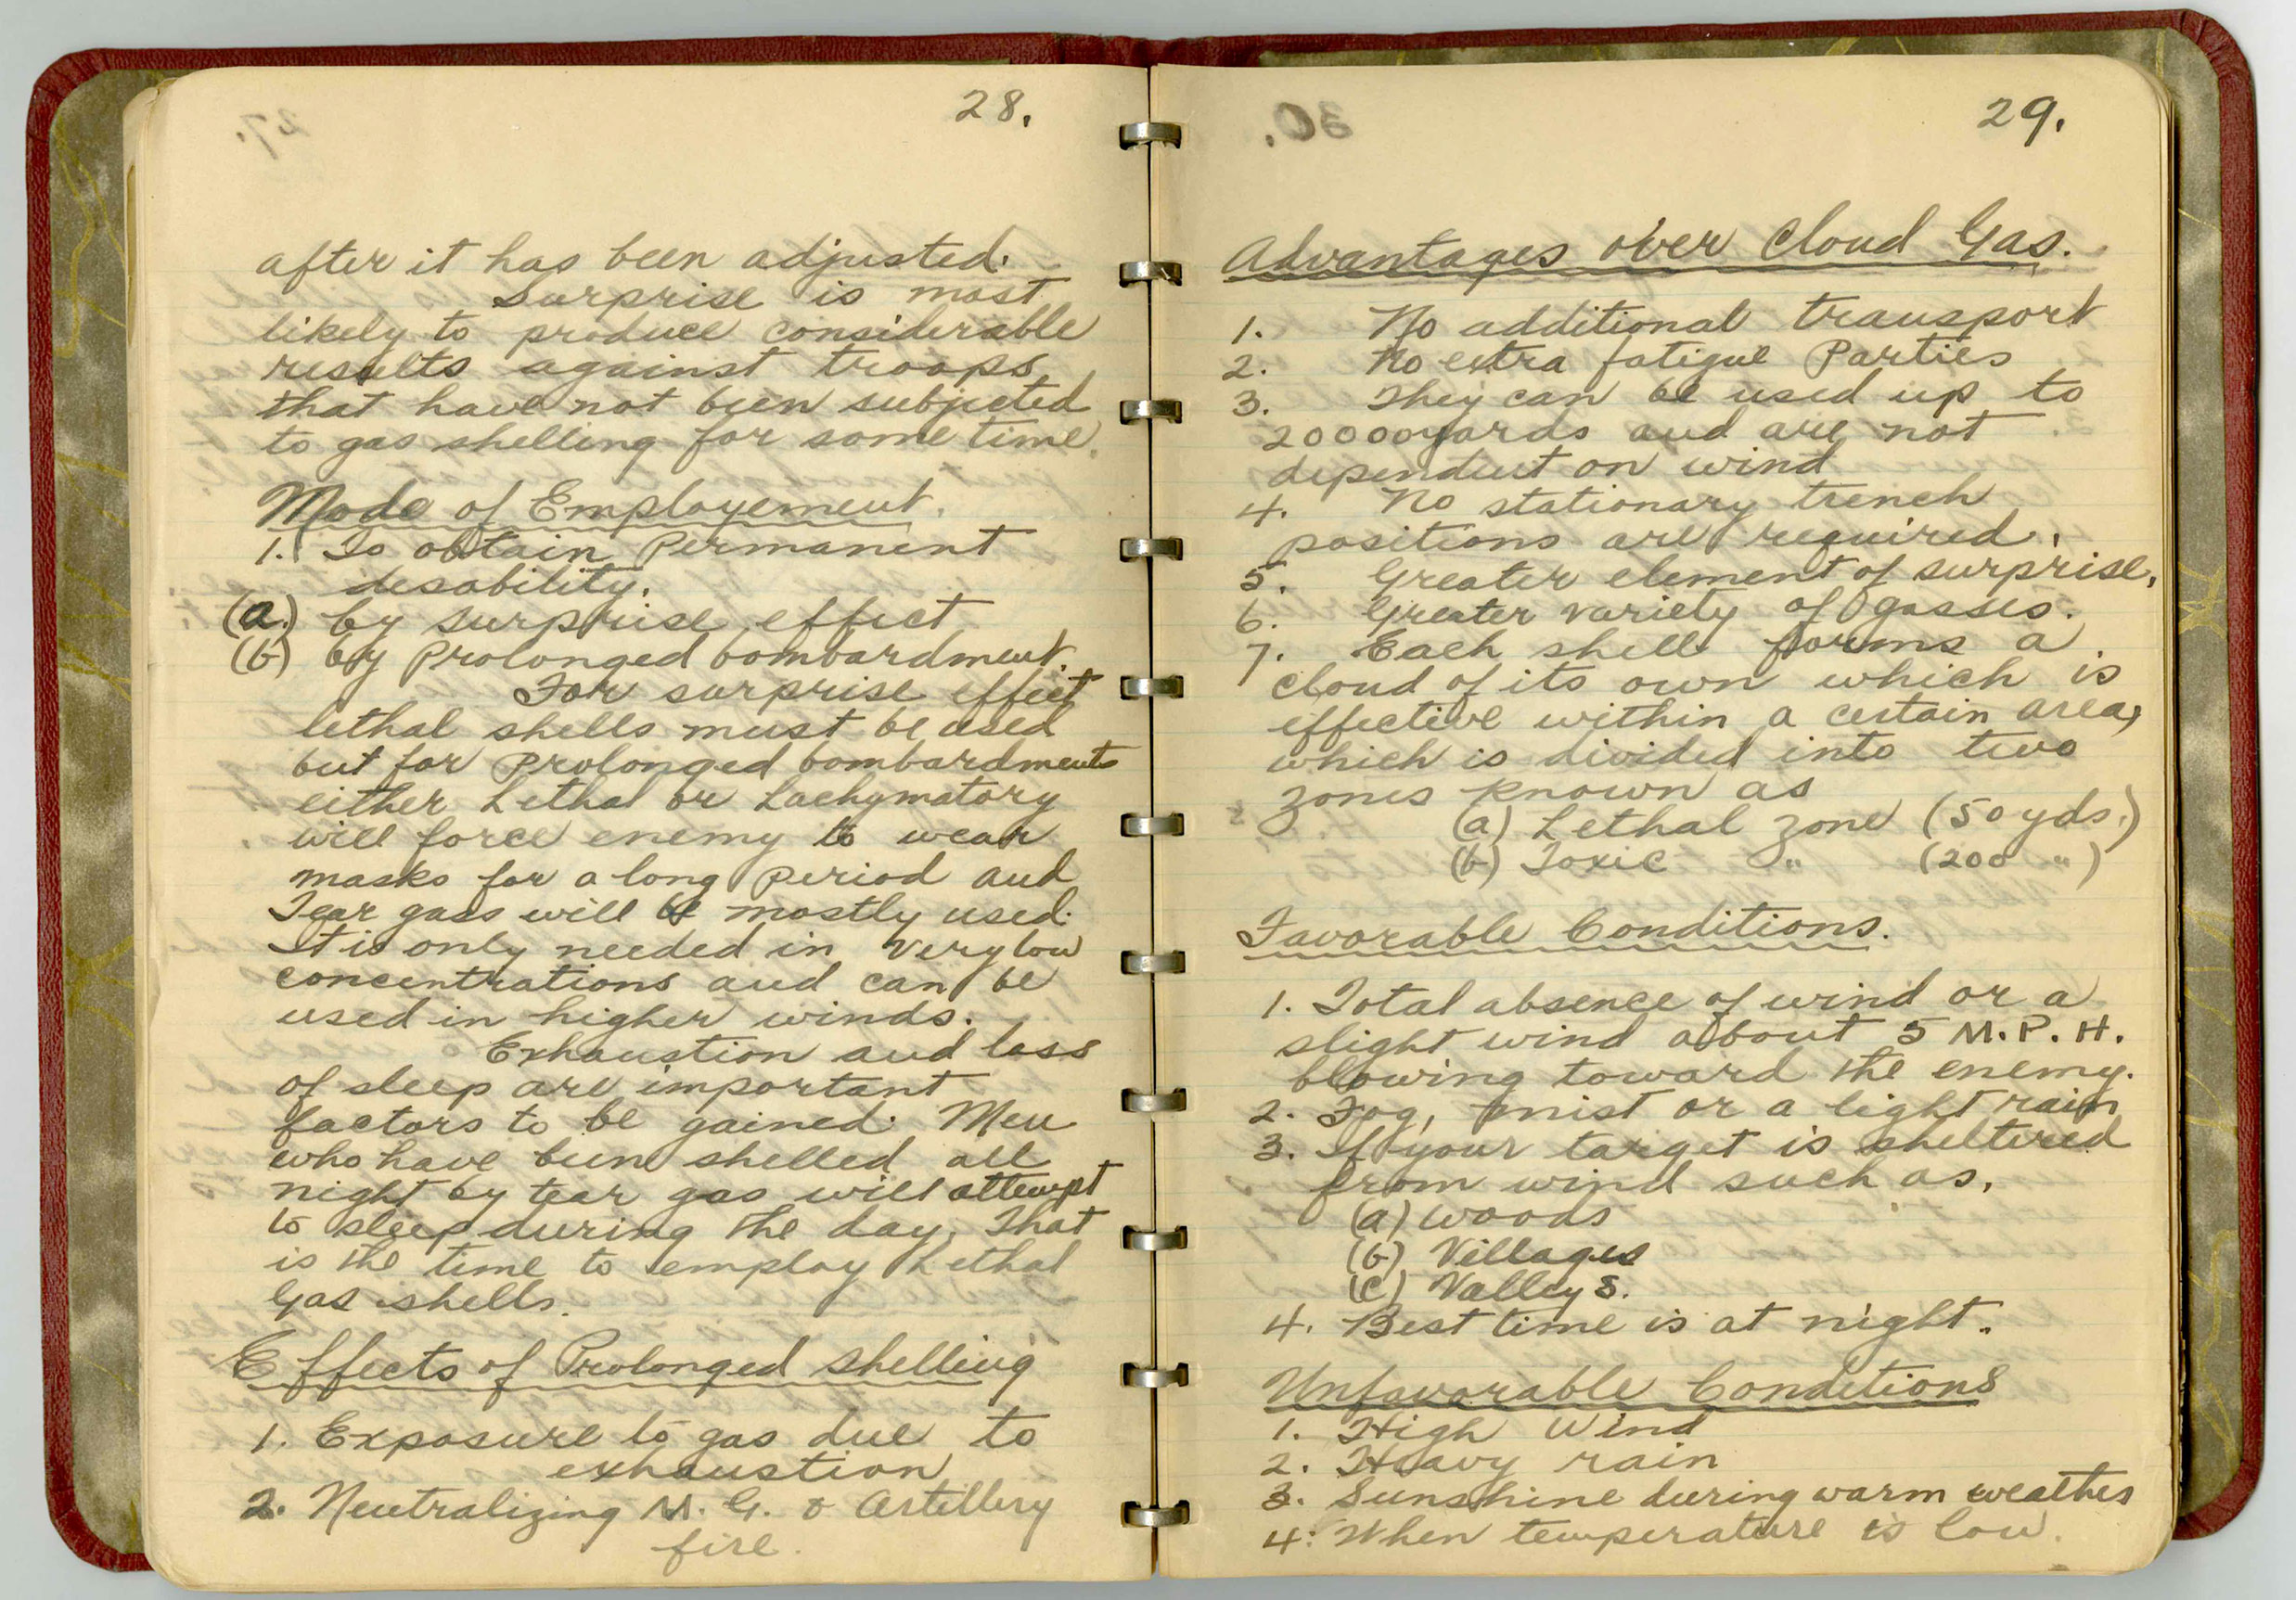 28.
after it has been adjusted.
Surprise is most
likely to produce considerable
results against troops
that have not been subjected
to gas shelling for some time.
Mode of Employement.
1. To obtain Permanent
desability.
(a.) by surprise effect
(b) by Prolonged bombardment.
For surprise effect
lethal shells must be used
but for Prolonged bombardments
either Lethal or Lachymatory
will force enemy to wear
masks for a long Period and
Tear gass will be mostly used.
It is only needed in very low
concentrations and can be
used in higher winds.
Exhaustion and loss
of sleep are important
factors to be gained. Men
who have been shelled all
night by tear gas will attempt
to sleep during the day. That
is the time to employ Lethal
Gas shells.
Effects of Prolonged Shelling
1. Exposure to gas due to
exhaustion
2. Neutralizing M. G. & Artillery
fire.
29.
Advantages over Cloud Gas.
1. No additional transport
2. No extra fatigue Parties
3. They can be used up to
20000 yards and are not
dependent on wind
4. No stationary trench
positions are required.
5. Greater element of surprise.
6. Greater variety of gasses.
7. Each shell forms a
cloud of its own which is
effective within a certain area,
which is divided into two
zones known as
(a) Lethal zone (50 yds.)
(b) Toxic " (200 ")
Favorable Conditions.
1. Total absence of wind or a
slight wind about 5 M.P.H.
blowing toward the enemy.
2. Fog, mist or a light rain
3. If your target is sheltered
from wind such as,
(a) Woods
(b) Villages
(c) Valleys.
4. Best time is at night.
Unfavorable Conditions
1. High Wind
2. Heavy rain
3. Sunshine during warm weather
4. When temperature is low.